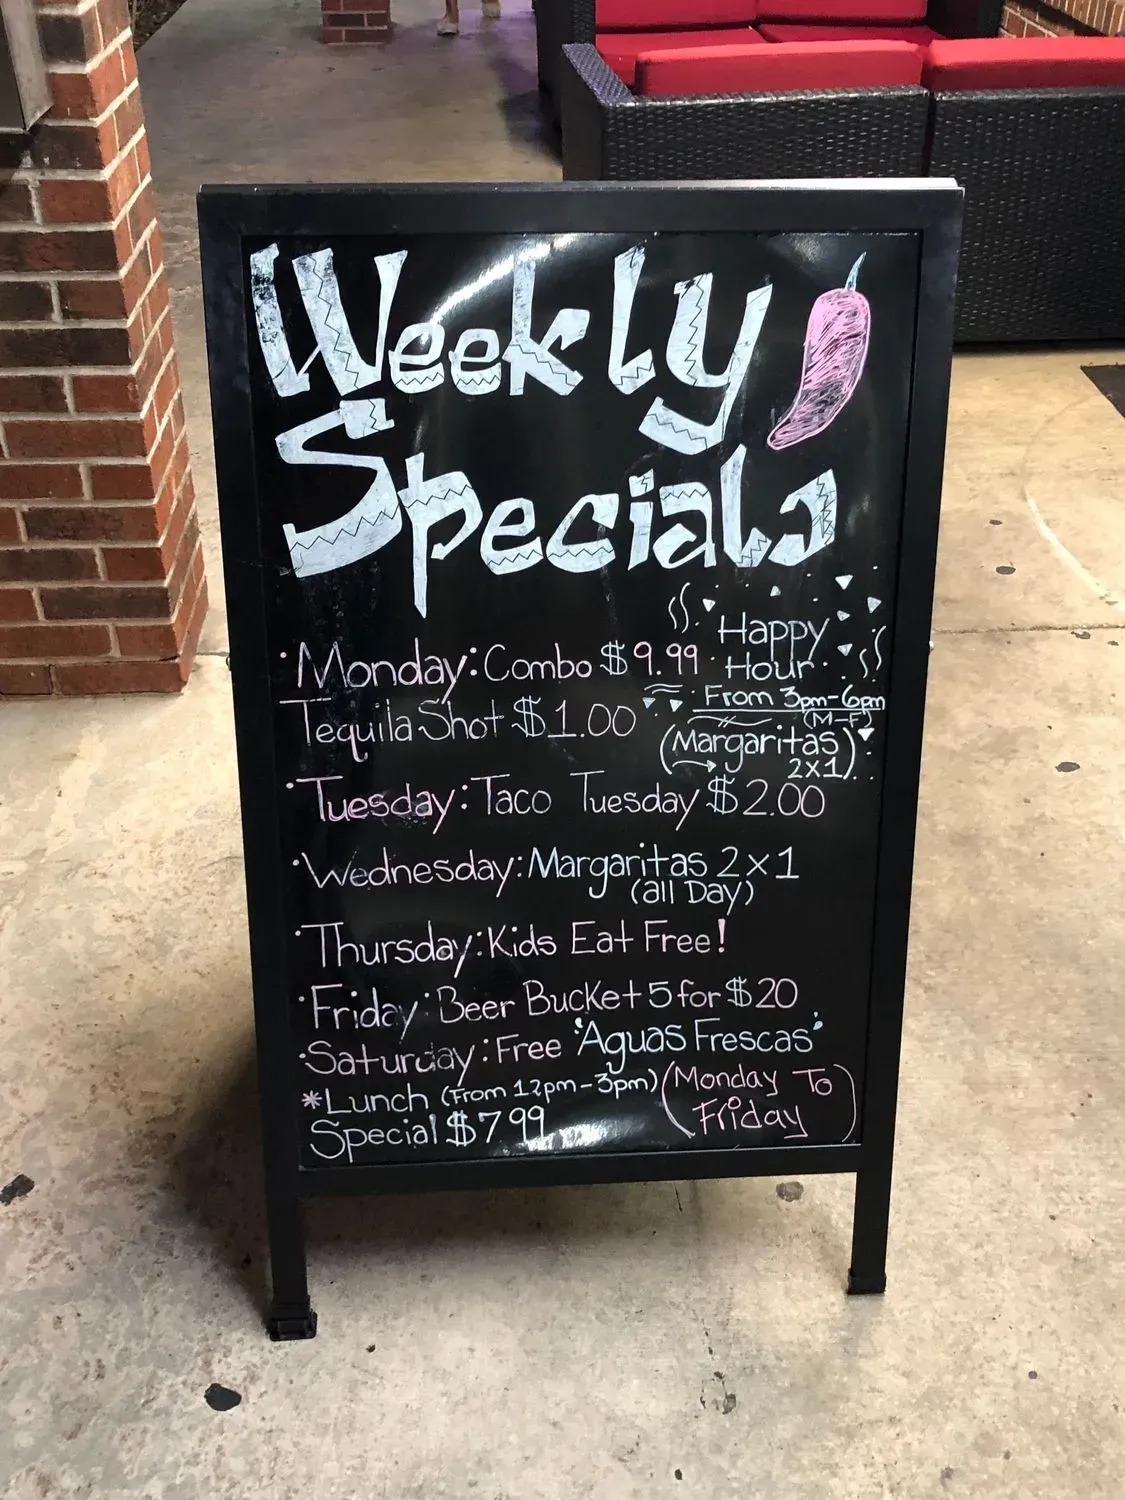 Weekly
Specials
Happy
Hour
From 3pm-6pm
(M-F)
(Margaritas
2x1)
•Monday: Combo $9.99
Tequila Shot $1.00
•Tuesday: Taco Tuesday $2.00
•Wednesday: Margaritas 2x1
(all Day)
•Thursday: Kids Eat Free!
•Friday: Beer Bucket 5 for $20
•Saturday: Free 'Aguas Frescas'
*Lunch (From 12pm-3pm) (Monday To
Special $7.99 Friday)